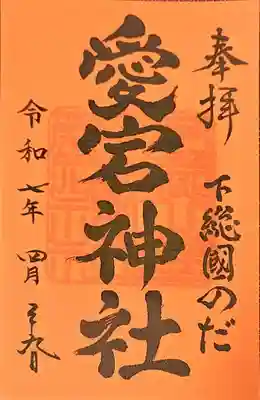 奉拝
下総國のだ
愛宕神社
令和七年 四月 二十九日